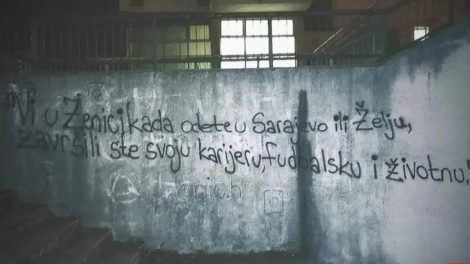 "Vi u Ženici, kada odete u Sarajevo ili Želju,
završili ste svoju karijeru, fudbalsku i životnu!